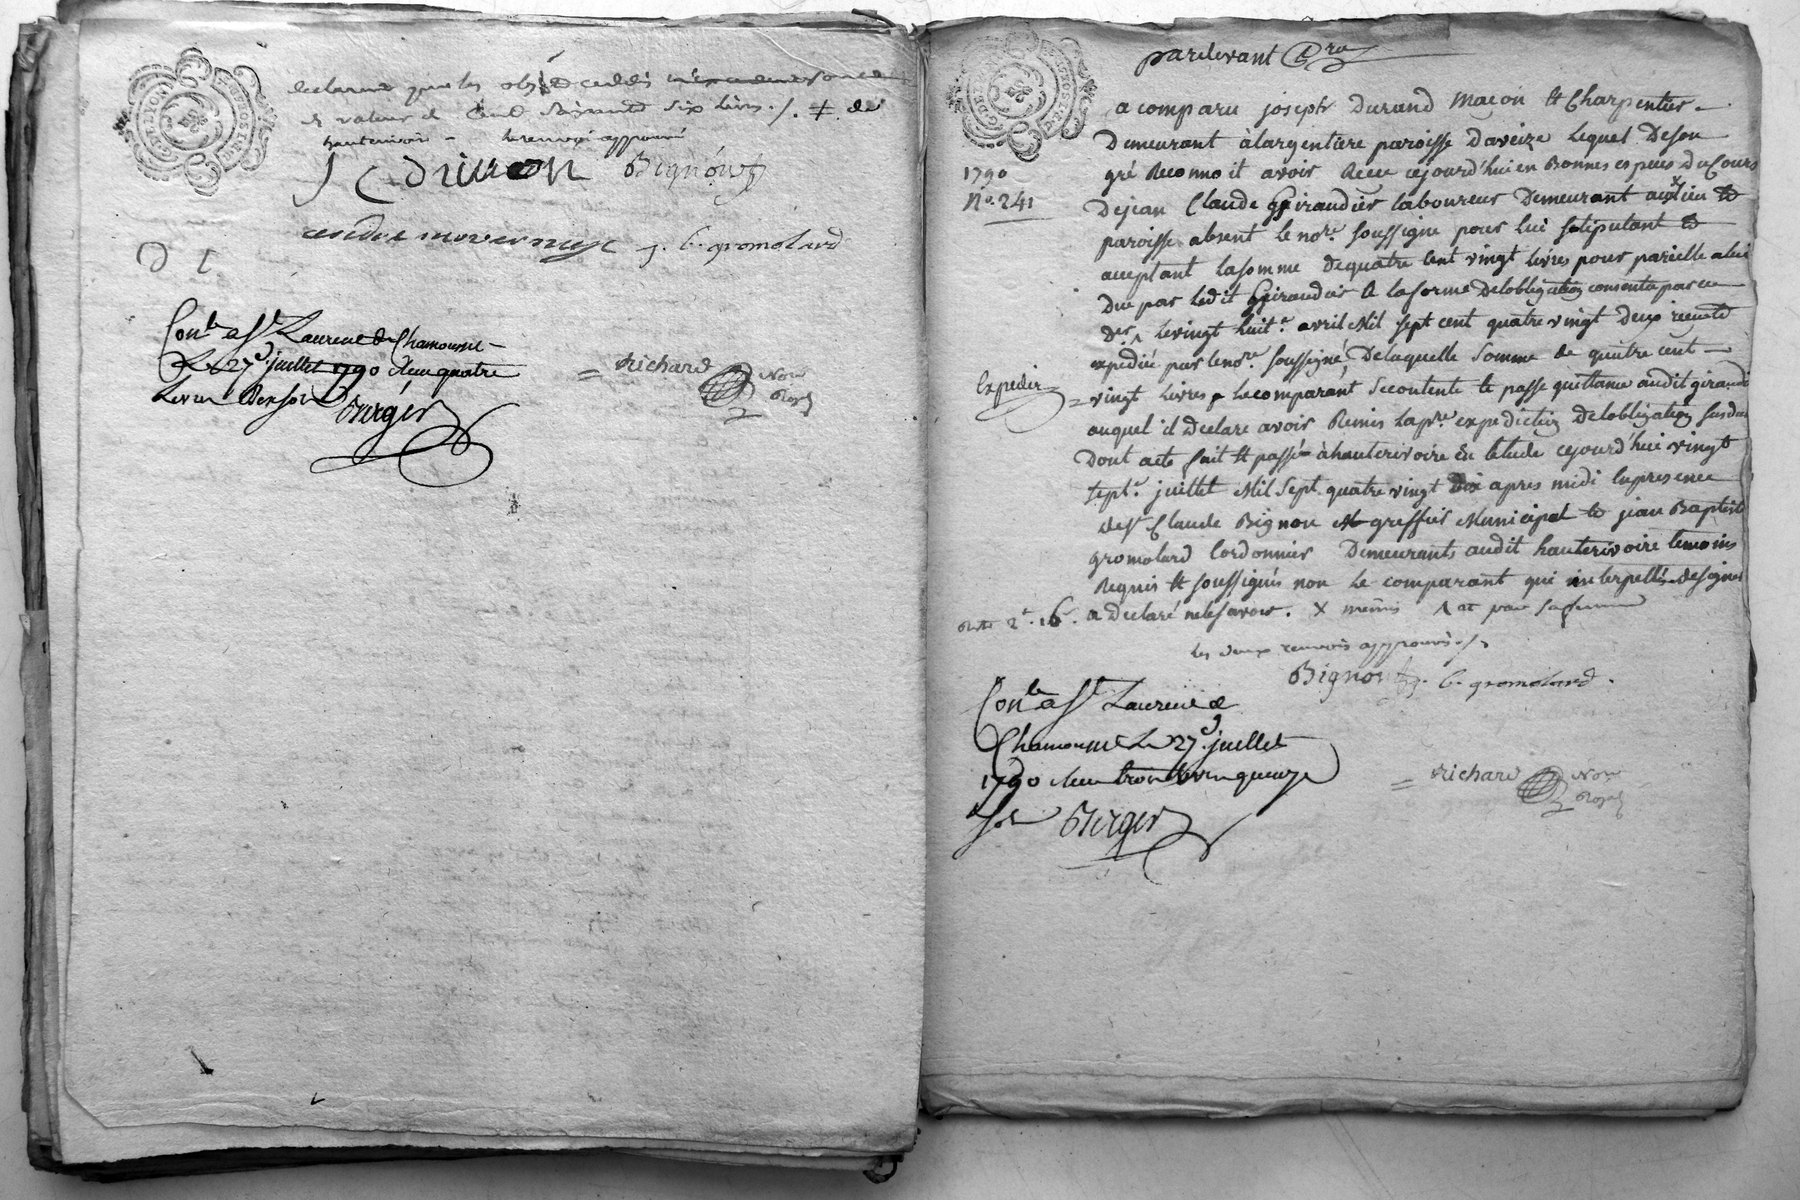 declarant que les objets cedés
de valeur de Cent Soixante six livres ./. + de
hauterivoire le renvoi approuvé
Bignon
j. b. gromolard
Con.le a St. Laurent de Chamousset
Le 27e. juillet 1790 Reçu quatre
Livres
Berger
= Richard Nore
Royal
pardevant &ra
a comparu joseph Durand Maçon & Charpentier
Demeurant à largentiere paroisse Daveize lequel De son
1790
gré Reconnoit avoir Reçu cejourd'hui en Bonnes especes Du Cours
No. 241
De jean Claude Giraudier laboureur Demeurant aux lieu &
paroisse absent le nore. soussigné pour lui stipulant &
acceptant la somme de quatre cent vingt livres pour pareille a lui
Due par ledit Giraudier A la forme De lobligation consentie par
^ le vingt huite. avril Mil sept cent quatre vingt Deux reçue &
expediée par le nore. soussigné, De laquelle somme de quatre cent
Expedié
= vingt livres le comparant se contente & passe quittance audit giraudier
auquel il Declare avoir Remis la pre. expedition De lobligation susdite
Dont acte fait & passé à hauterivoire En letude cejourd'hui vingt
sept.e juillet Mil Sept quatre vingt Dix apres midi En presence
de Sr. Claude Bignon greffier Municipal & jean Baptiste
gromolard Cordonnier Demeurants audit hauterivoire temoins
Requis & soussignés non le comparant qui interpellé de signer
a Declaré ne le savoir. x mêmes ^ et par sa femme
les deux renvois approuvés ./.
Bignon j. b. gromolard.
Con.le a St. Laurent de
Chamousset Le 27e. juillet
1790 Reçu trois livres quinze
sols Berger
= Richard Nore
Royal